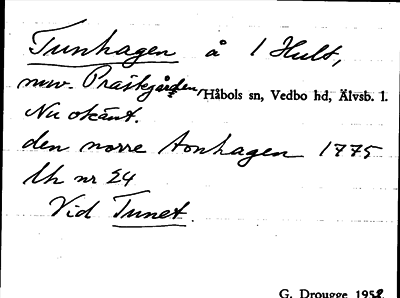 Tunhagen å 1 Hult,
nuv. Prästgården, Håbols sn, Vedbo hd, Älvsb. l.
Nu okänt.
den norre tonhagen 1775
Uh nr 24
Vid Tunet.
G. Drougge 1952.